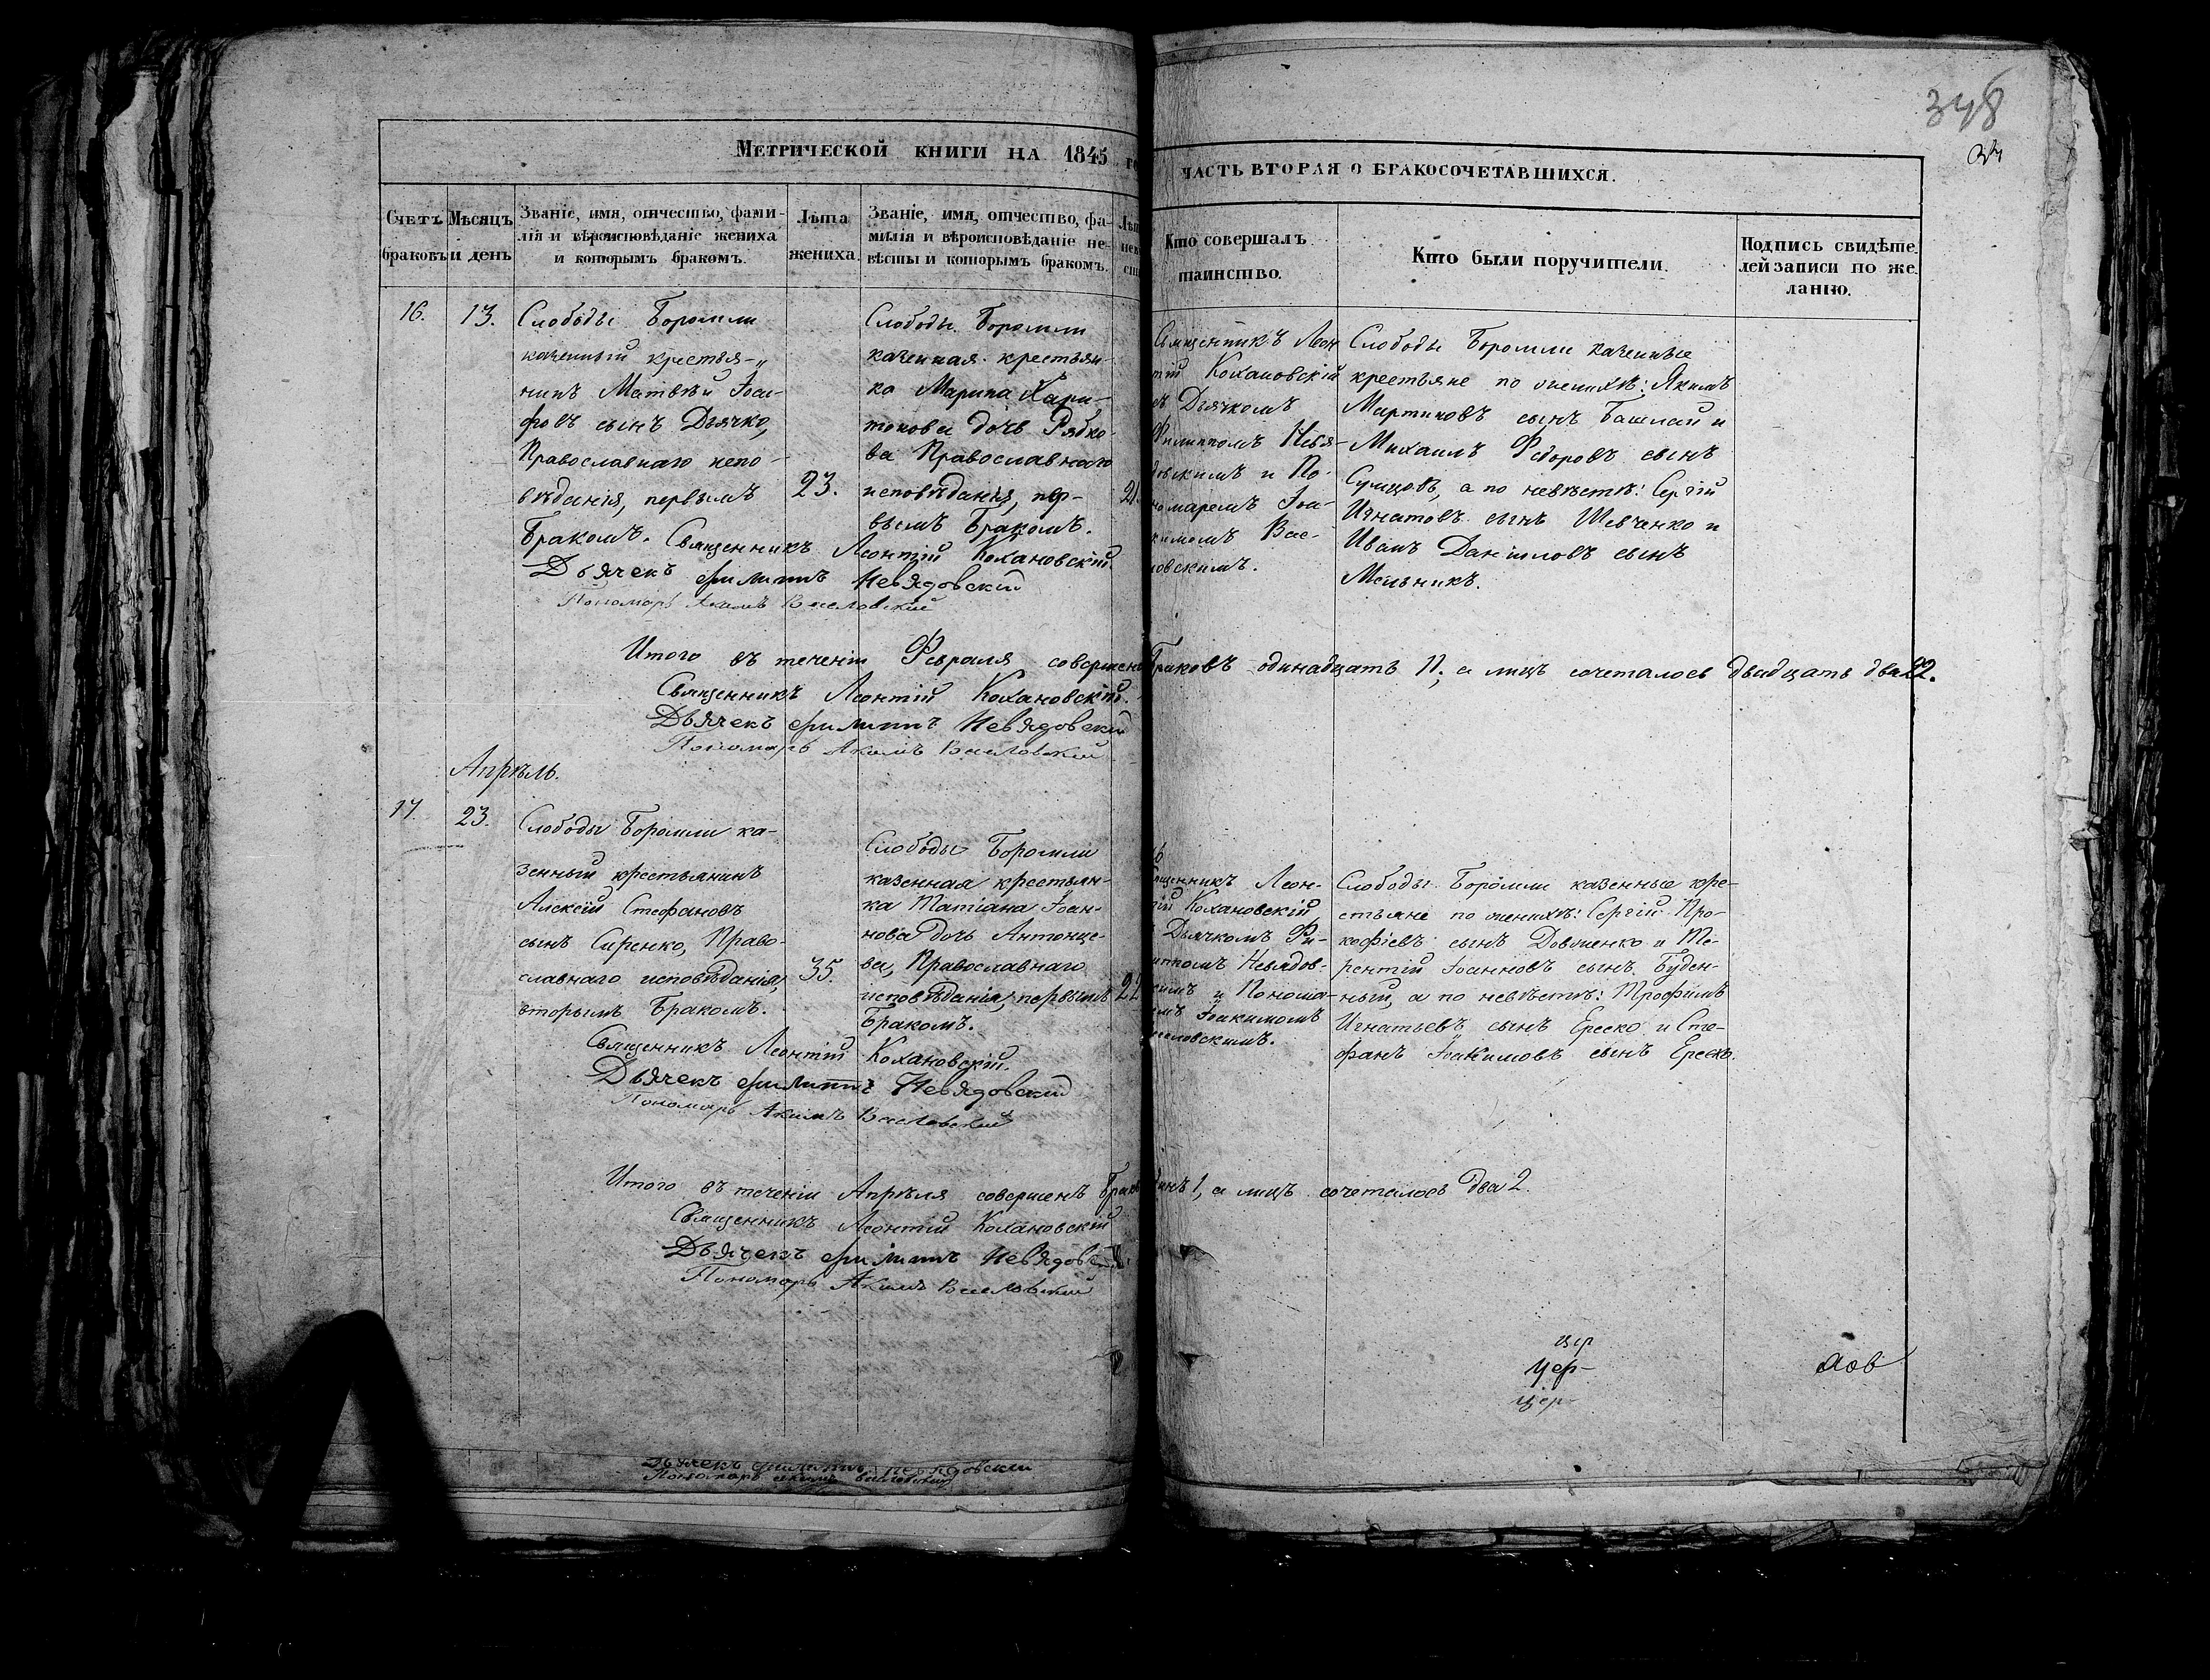 348
МЕТРИЧЕСКОЙ КНИГИ НА 1845 го
ЧАСТЬ ВТОРАЯ О БРАКОСОЧЕТАВШИХСЯ.
Счетъ браковъ
Мѣсяцъ и день
Званіе, имя, отчество, фами-
лія и вѣроисповѣданіе жениха
и которымъ бракомъ.
Лѣта жениха.
Званіе, имя, отчество, фа-
милія и вѣроисповѣданіе не-
вѣсты и которымъ бракомъ.
Кто совершалъ
таинство.
Кто были поручители.
Подпись свидѣте
лей записи по же
ланію.
16.
13.
Слободы Боромли
казенный крестья-
нинъ Матвѣй Іоси-
фовъ сынъ Дьячко,
Православнаго испо-
вѣданія, первымъ
Бракомъ.
23.
Слободы Боромли
казенная крестьян-
ка Марина Хари-
тонова дочь Рябко-
ва Православнаго
исповѣданія, пер-
вымъ Бракомъ.
21.
Священникъ Леон
тій Кохановскій
съ Дьячкомъ
Филиппомъ Невя-
довскимъ и По-
номаремъ Іоа-
кимомъ Вас-
ловскимъ.
Слободы Боромли казенные
крестьяне по женихѣ: Якимъ
Мартиновъ сынъ Башлай и
Михаилъ Федоровъ сынъ
Сумцовъ, а по невѣстѣ: Сергій
Игнатовъ сынъ Шевченко и
Иванъ Даніиловъ сынъ
Мельникъ.
Священникъ Леонтій Кохановскій.
Дьячекъ Филиппъ Невядовскій
Пономарь Акимъ Васловскій
Итого въ теченіи Февраля совершено Браковъ одинадцать 11, а лицъ сочеталось двадцать два 22.
Священникъ Леонтій Кохановскій.
Дьячекъ Филиппъ Невядовскій
Пономарь Акимъ Васловскій
Апрѣль.
17.
23.
Слободы Боромли ка-
зенный крестьянинъ
Алексій Стефановъ
сынъ Сиренко, Право-
славнаго исповѣданія,
вторымъ Бракомъ.
35.
Слободы Боромли
казенная крестьян-
ка Татіана Іоан-
нова дочь Антонце-
ва, Православнаго
исповѣданія, первымъ
Бракомъ.
22
щенникъ Леон-
тій Кохановскій,
Дьячкомъ Фи-
ппомъ Невядов-
скимъ и Понома-
емъ Іоакимомъ
асловскимъ.
Слободы Боромли казенные кре-
стьяне по женихѣ: Сергій Про-
кофіевъ сынъ Довженко и Те-
рентій Іоанновъ сынъ Буден-
ный, а по невѣстѣ: Трофимъ
Игнатьевъ сынъ Ереско и Сте-
фанъ Іоакимовъ сынъ Ереско.
Священникъ Леонтій Кохановскій.
Дьячекъ Филиппъ Невядовскій
Пономарь Акимъ Васловскій
Итого въ теченіи Апрѣля совершенъ Бракъ одинъ 1, а лицъ сочеталось два 2.
Священникъ Леонтій Кохановскій
Дьячекъ Филиппъ Невядовскій
Пономарь Акимъ Васловскій
цер
цер-
цер-
Дьячекъ Филиппъ Невядовскій
Пономарь Акимъ Васловскій